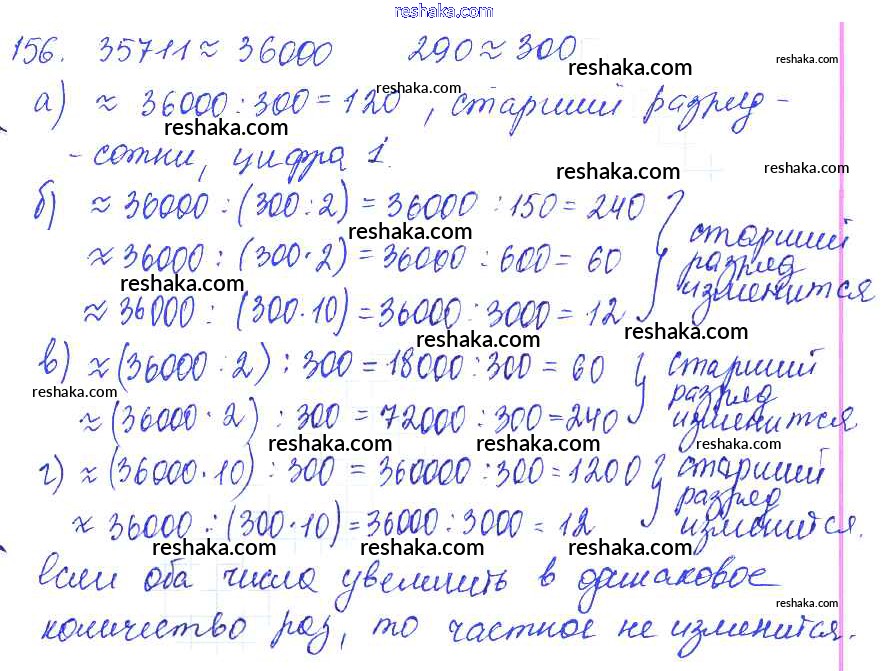 reshaka.com
156. 35711 ≈ 36000 290 ≈ 300
reshaka.com reshaka.com
а) ≈ 36000 : 300 = 120, старший разряд -
reshaka.com reshaka.com
- сотни, цифра 1.
reshaka.com reshaka.com
б) ≈ 36000 : (300 : 2) = 36000 : 150 = 240
reshaka.com
≈ 36000 : (300 · 2) = 36000 : 600 = 60
старший
разряд
изменится
reshaka.com
≈ 36000 : (300 · 10) = 36000 : 3000 = 12
reshaka.com reshaka.com
в) ≈ (36000 : 2) : 300 = 18000 : 300 = 60
reshaka.com
≈ (36000 · 2) : 300 = 72000 : 300 = 240
старший
разряд
изменится
reshaka.com reshaka.com reshaka.com
г) ≈ (36000 · 10) : 300 = 360000 : 300 = 1200
≈ 36000 : (300 · 10) = 36000 : 3000 = 12
старший
разряд
изменится.
reshaka.com reshaka.com reshaka.com
Если оба числа увеличить в одинаковое
reshaka.com
количество раз, то частное не изменится.
reshaka.com